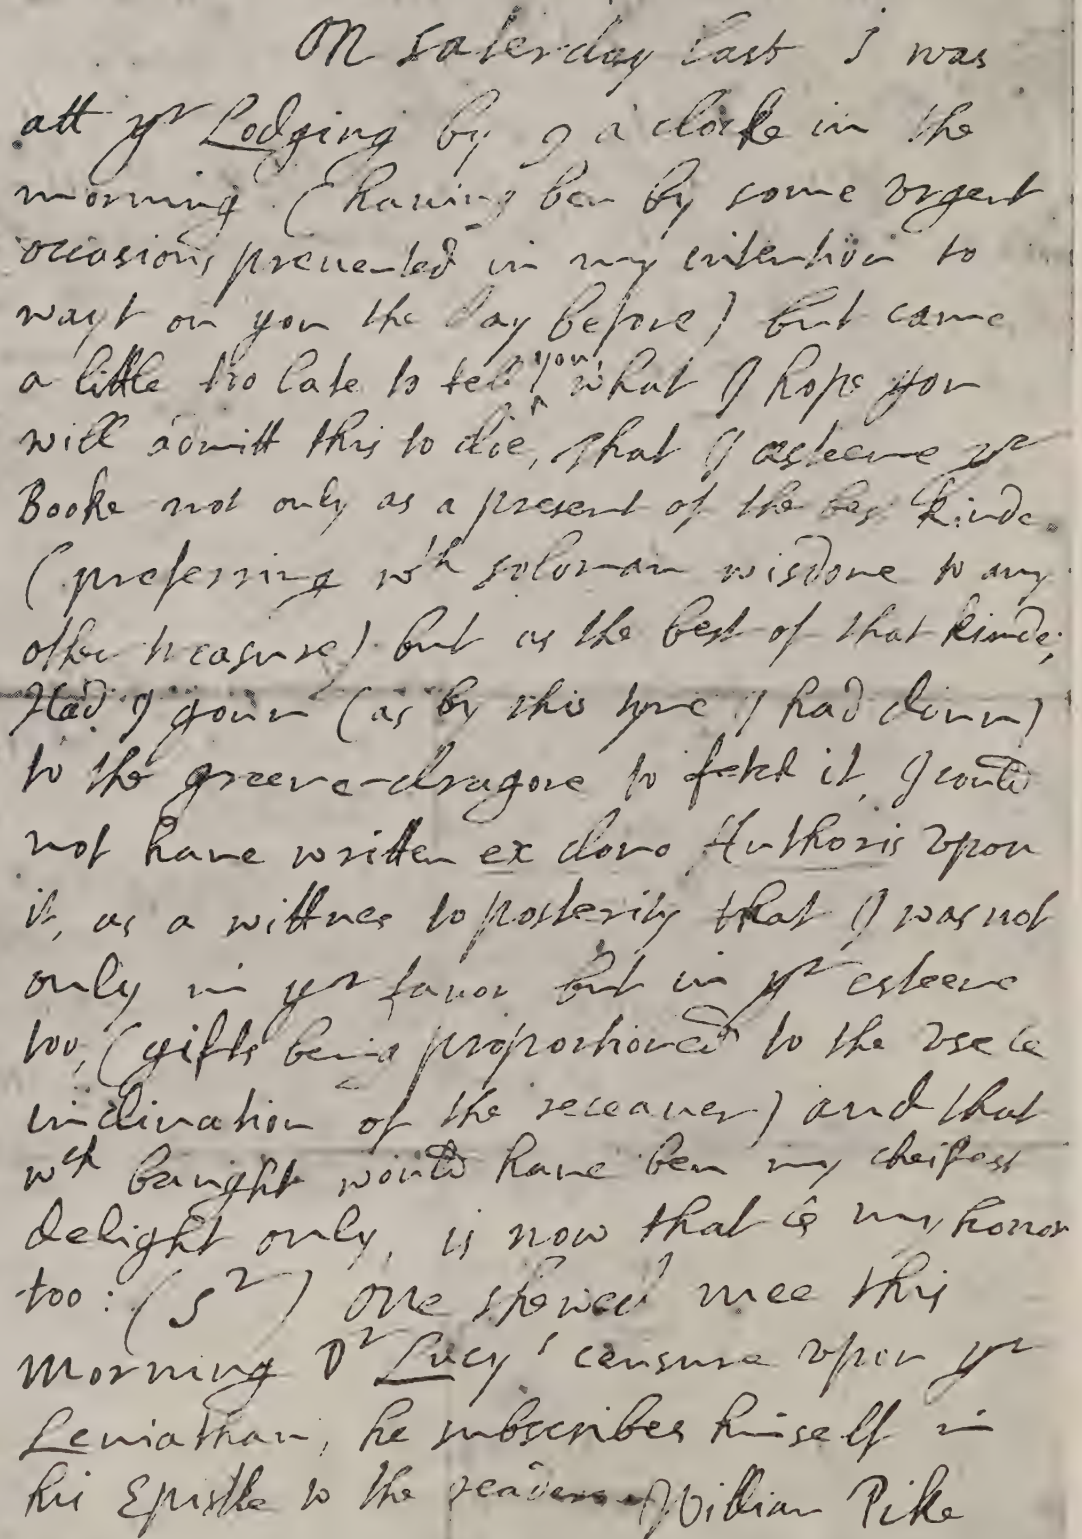 On saterday last I was
att yr Lodging by 9 a clocke in the
morning (hauing ben by some vrgent
occasions preuented in my intention to
wayt on you the day before) but came
a little too late to tell you, what I hope you
will admitt this to doe, That I esteeme yr
Booke not only as a present of the best kinde
(preferring wth soloman wisdome to any
other treasure) but as the best of that kinde;
Had I gonn (as by this tyme I had donn)
to the greene-dragone to fetch it, I could
not haue written ex dono Authoris vpon
it, as a wittnes to posterity that I was not
only in yr fauor but in yr esteeme
too, (gifts being proportioned to the vse &
inclination of the receauer) and that
wch baught would haue ben my cheifest
delight only, is now that & my honor
too: (Sr) One shewed mee this
morning Dr Lucy's censure vpon yr
Leuiathan, he subscribes himself in
his Epistle to the reader William Pike